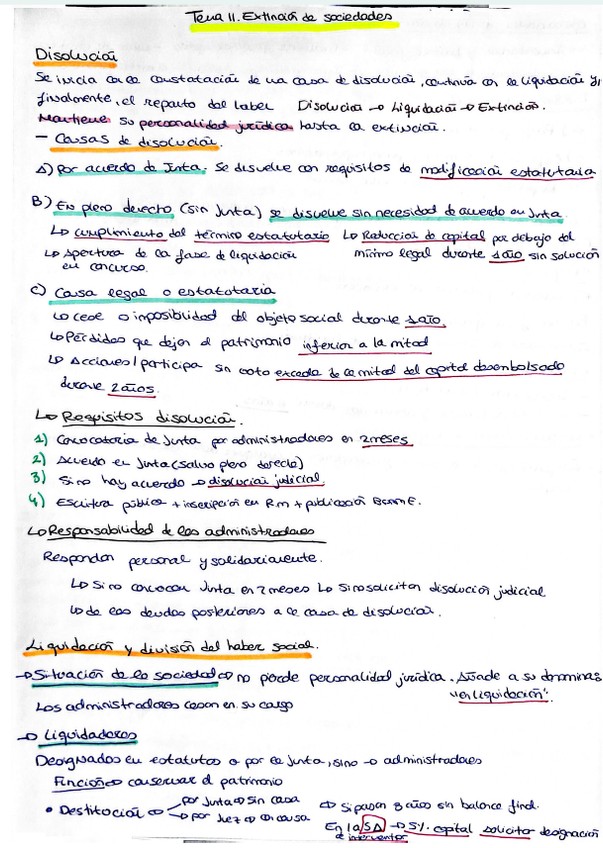 Tema 11. Extinción de sociedades
Disolución
Se inicia con la constatación de una causa de disolución, continúa con la liquidación y,
finalmente, el reparto del haber Disolución → Liquidación → Extinción.
Mantiene su personalidad jurídica hasta la extinción.
- Causas de disolución.
A) Por acuerdo de Junta. Se disuelve con requisitos de modificación estatutaria
B) En pleno derecho (sin Junta) se disuelve sin necesidad de acuerdo en Junta
↳ Cumplimiento del término estatutario ↳ Reducción de capital por debajo del
↳ Apertura de la fase de liquidación mínimo legal durante 1 año sin solución
en concurso.
C) Causa legal o estatutaria
↳ cese o imposibilidad del objeto social durante 1 año.
↳ Pérdidas que dejan el patrimonio inferior a la mitad
↳ Acciones/participa sin voto exceda de la mitad del capital desembolsado
durante 2 años.
↳ Requisitos disolución.
1) Convocatoria de Junta por administradores en 2 meses
2) Acuerdo en Junta (salvo pleno derecho)
3) Si no hay acuerdo → disolución judicial
4) Escritura pública + inscripción en RM + publicación BORME.
↳ Responsabilidad de los administradores
Responden personal y solidariamente.
↳ Si no convocan Junta en 2 meses ↳ Si no solicitan disolución judicial
↳ de las deudas posteriores a la causa de disolución.
Liquidación y división del haber social.
→ Situación de la sociedad ⇨ no pierde personalidad jurídica. Añade a su denominac
"en liquidación".
Los administradores cesan en su cargo
→ Liquidadores
Designados en estatutos o por la Junta, si no → administradores
Función ⇨ conservar el patrimonio
• Destitución ⇨ por Junta ⇨ sin causa ⇨ Si pasan 3 años sin balance final.
por Juez ⇨ con causa En la SA → 5% capital solicitar designación
de interventor